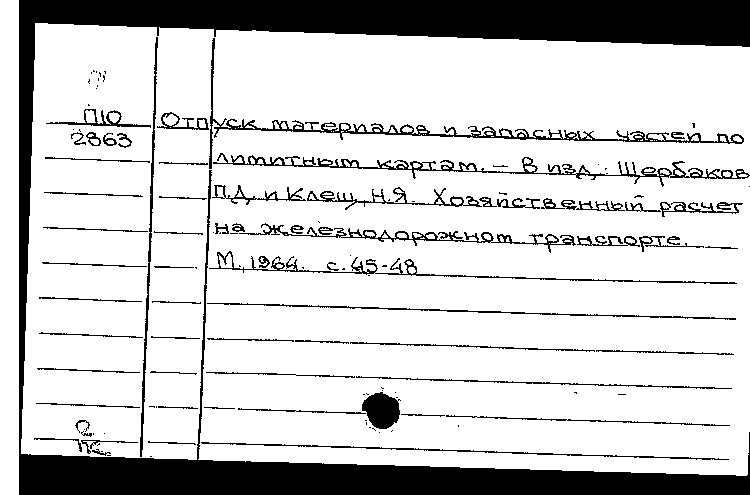 П10
2863
Отпуск материалов и запасных частей по
лимитным картам. – В изд.: Щербаков
П.Д. и Клещ, Н.Я. Хозяйственный расчет
на железнодорожном транспорте.
М., 1964. с. 45-48